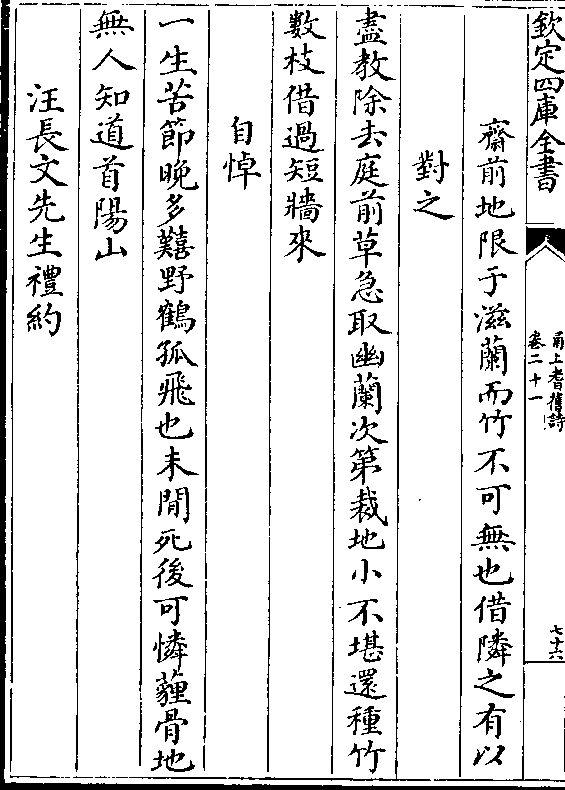 欽定四庫全書
甬上耆舊詩
卷二十一
七十六
齋前地限于滋蘭而竹不可無也借隣之有以
對之
盡教除去庭前草急取幽蘭次第栽地小不堪還種竹
數枝借過短牆來
自悼
一生苦節晚多囏野鶴孤飛也未閒死後可憐薶骨地
無人知道首陽山
汪長文先生禮約